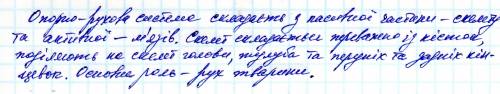 Опорно-рухова система складаєть з пасивної частини – скелету
та активної – м'язів. Скелет складається переважно із кісток,
поділяють на скелет голови, тулуба та перуніх та задніх кін-
цівок. Основна роль – рух тварини.